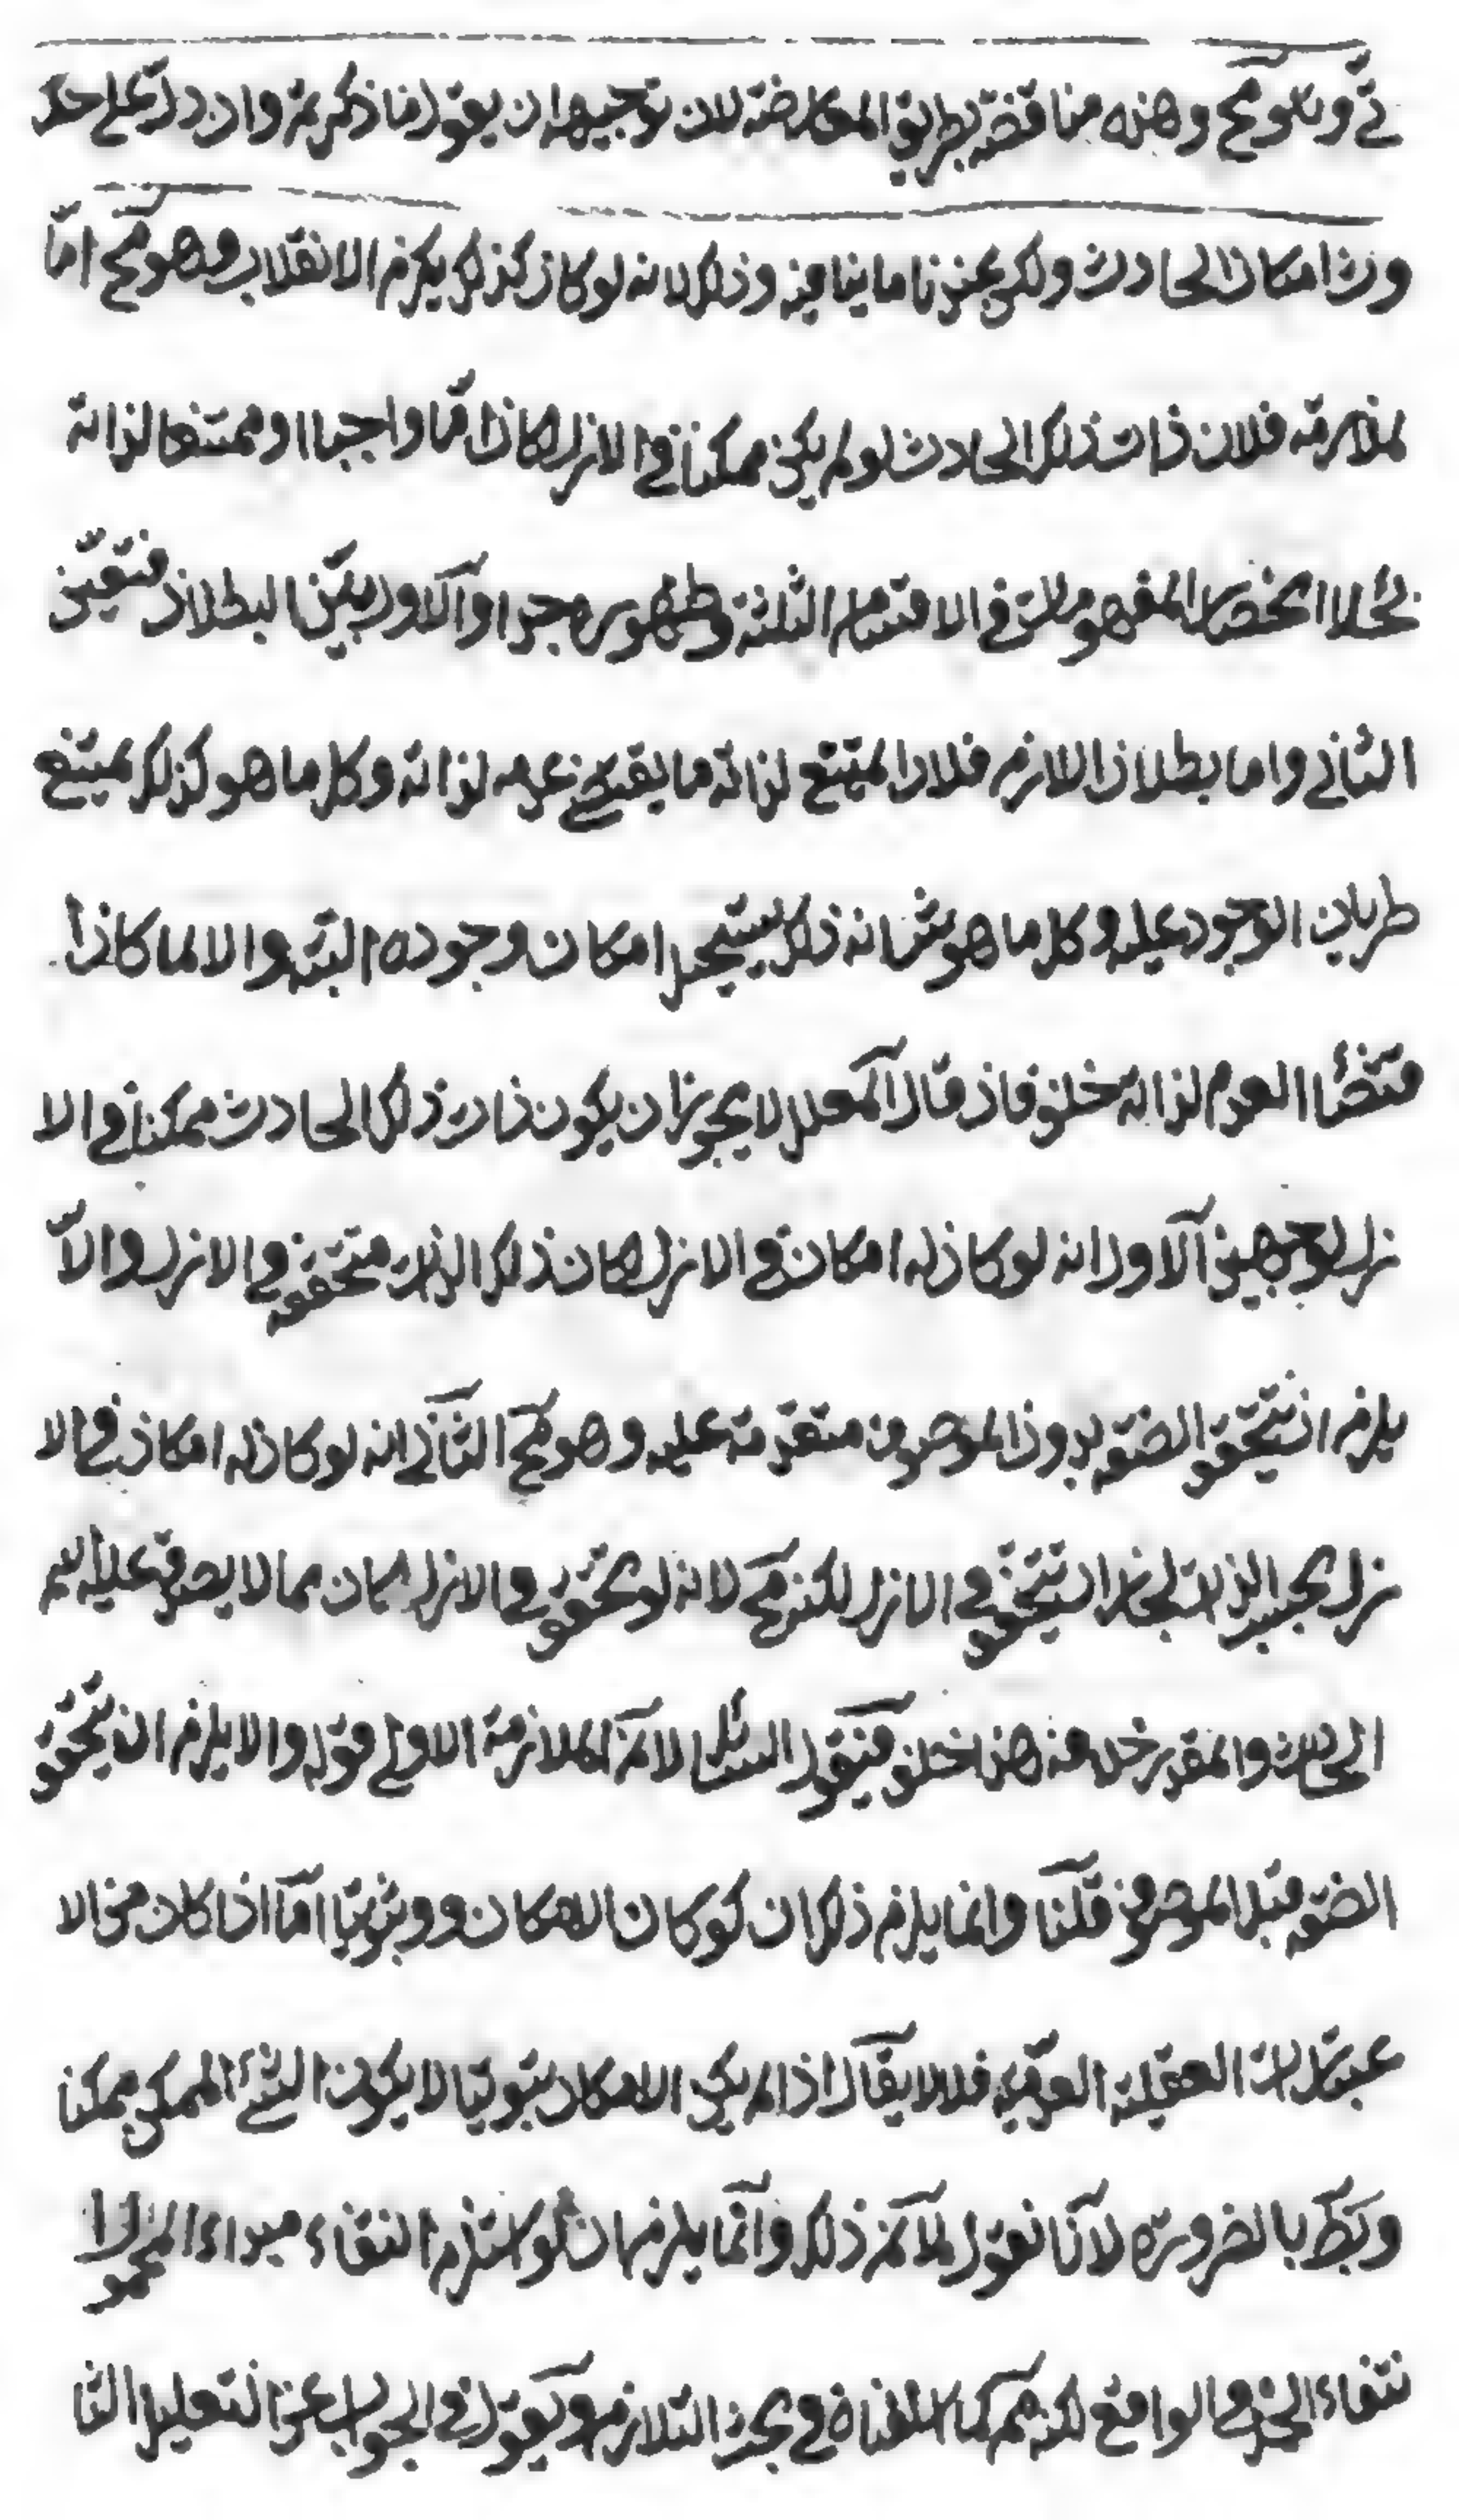 تى وهو مح وهذه مناقضة بطريق المعارضة لان توجيهه ان يقول ما ذكرتم وان دل على حد
وث امكان الحادث ولكن عندنا ما ينافيه وذلك لانه لو كان كذلك يلزم الانقلاب وهو مح اما
لملازمة فلان ذات ذلك الحادث لو لم يكن ممكنا في الازل لكان اما واجبا او ممتنعا لذاته
لانحصار المفهومات في الاقسام الثلثة والاول بين البطلان فتعين
الثاني واما بطلان اللازم فلان الممتنع لذاته ما يقتضي عدمه لذاته وكل ما هو كذلك يمتنع
طريان الوجود عليه وكل ما هو شانه ذلك يستحيل امكان وجوده البتة والا لما كان ا
مقتضيا العدم لذاته خلف فان قال المعلل لا يجوز ان يكون ذات ذلك الحادث ممكنا في الا
زل لوجهين الاول انه لو كان له امكان في الازل لكان ذلك الذات متحققة في الازل والا
يلزم ان يتحقق الصفة بدون الموصوف متقدمة عليه وهو مح الثاني انه لو كان له امكان في الا
زل بحسب الذات لجاز ان يتحقق في الازل لكنه مح لانه لو تحقق في الازل لكان مما لا يصدق عليه اسم
الحادث والمقدر خلافه هذا خلف فيقول السائل لا نم الملازمة الاولى قوله والا يلزم ان يتحقق
الصفة قبل الموصوف قلنا وانما يلزم ذلك ان لو كان الامكان ثبوتيا اما اذا كان من الا
عتبارات العقلية العدمية فلا لا يقال اذا لم يكن الامكان ثبوتيا لا يكون الشئ الممكن ممكنا
بالضرورة لانا نقول لا نم ذلك وانما يلزم ان لو استلزم انتفاء مبداء المحمول ا
نتفاء الحمل في الواقع لكنه مح كما في بحث التلازم ويقول في الجواب عن التعليل الثا